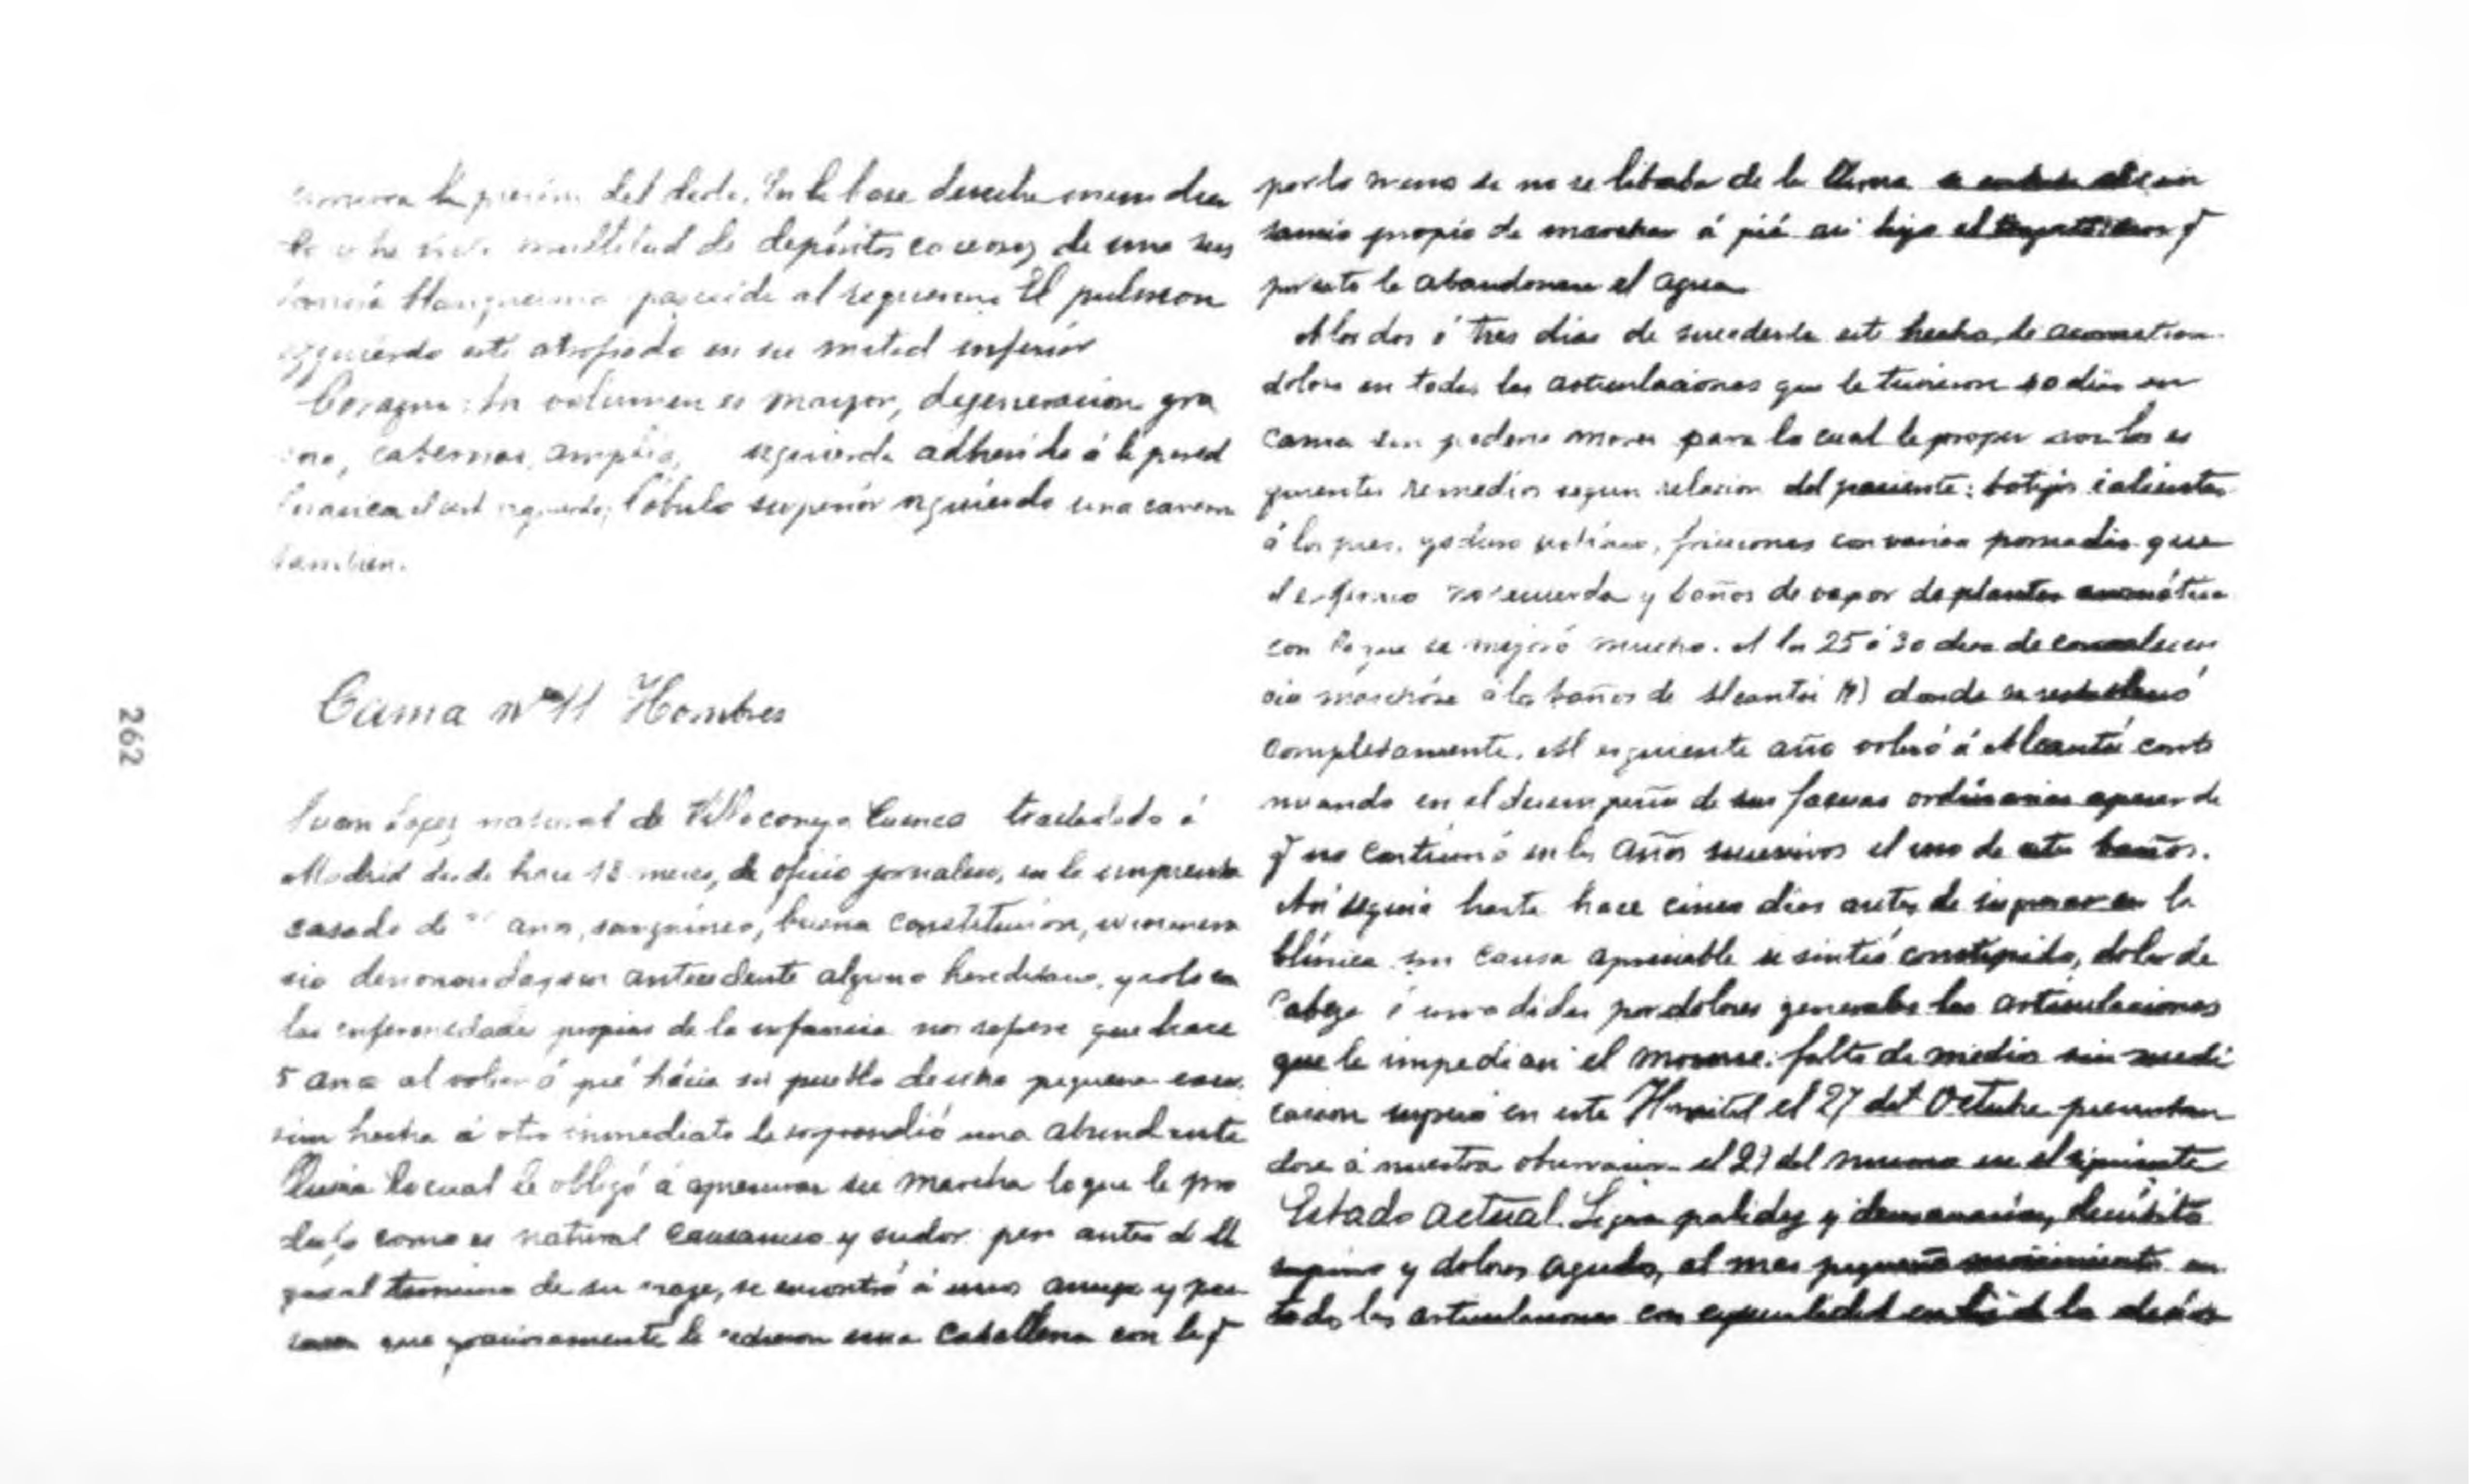 la presión del dedo. En la base derecha
multitud de depósitos caseosos de una sus
parecida al El pulmon
izquierdo está atrofiado en su mitad inferior
Corazon: Su volumen es mayor, degeneracion gra
cavernas amplias, izquierda adherido á la pared
lóbulo superior izquierdo una caverna
tambien.
Cama nº 11 Hombres
Juan Lopez natural de Cuenca trasladado á
Madrid desde hace 18 meses, de oficio jornalero, en la imprenta
casado de años, sanguineo, buena constitucion,
sin antecedente alguno hereditario, y solo en
las enfermedades propias de la infancia nos refiere que hace
5 años al volver á pié hácia su pueblo de una pequeña escur
sion hecha á otro inmediato le sorprendió una abundante
lluvia lo cual le obligó á apresurar su marcha lo que le pro
dujo como es natural cansancio y sudor pero antes de lle
gar al termino de su viaje, se encontró á unos amigos y
que graciosamente le cedieron una caballeria con la q̃
por lo menos si no se libraba de la lluvia
sancio propio de marchar á pié asi hizo el q̃
por esto le abandonara el agua
A los dos ó tres dias de sucederle este hecho, le acometieron
dolores en todas las articulaciones que le tuvieron dias en
cama sin poderse mover para lo cual le los si
guientes remedios segun relacion del paciente: botijos calientes
á los pies, yoduro potásico, fricciones con varias pomadas que
el enfermo no recuerda y baños de vapor de plantas aromáticas
con lo que se mejoró mucho. A los 25 ó 30 dias de convalecen
cia marchóse á los baños de donde se restableció
completamente. Al siguiente año volvió á conti
nuando en el desempeño de sus faenas ordinarias apesar de
q̃ no continuó en los años sucesivos el uso de estos baños.
Asi seguia hasta hace cinco dias antes de ingresar en la
Clínica sin causa apreciable se sintió constipado, dolor de
cabeza é invadidas por dolores generales las articulaciones
que le impedian el moverse: falto de medios sin medi
cacion ingresó en este Hospital el 27 del Octubre presentan
dose á nuestra observacion el 29 del mismo en el siguiente
Estado actual. Ligera palidez y demacracion, decúbito
supino y dolores agudos, al mas pequeño movimiento en
todas las articulaciones con especialidad en las de la